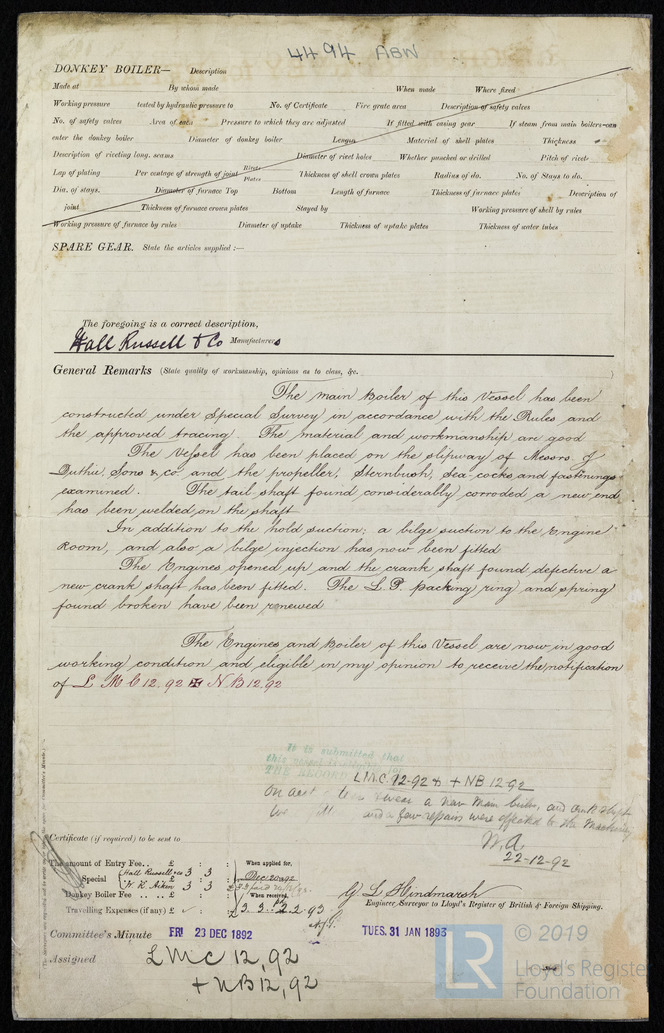 4494 ABW
DONKEY BOILER— Description
Made at By whom made When made Where fixed
Working pressure tested by hydraulic pressure to No. of Certificate Fire grate area Description of safety valves
No. of safety valves Area of each Pressure to which they are adjusted If fitted with easing gear If steam from main boilers can
enter the donkey boiler Diameter of donkey boiler Length Material of shell plates Thickness
Description of riveting long. seams Diameter of rivet holes Whether punched or drilled Pitch of rivets
Lap of plating Per centage of strength of joint Rivets Thickness of shell crown plates Radius of do. No. of Stays to do.
Plates
Dia. of stays. Diameter of furnace Top Bottom Length of furnace Thickness of furnace plates Description of
joint Thickness of furnace crown plates Stayed by Working pressure of shell by rules
Working pressure of furnace by rules Diameter of uptake Thickness of uptake plates Thickness of water tubes
SPARE GEAR. State the articles supplied :—
The foregoing is a correct description,
Hall Russell & Co Manufacturers
General Remarks (State quality of workmanship, opinions as to class, &c.
The main Boiler of this Vessel has been
constructed under Special Survey in accordance with the Rules and
the approved tracing. The material and workmanship are good
The Vessel has been placed on the slipway of Messrs. J
Duthie, Sons & co and the propeller, Sternbush, Sea-cocks, and fastenings
examined. The tail shaft found considerably corroded a new end
has been welded on the shaft
In addition to the hold suction; a bilge suction to the Engine
Room, and also a bilge injection has now been fitted
The Engines opened up and the crank shaft found defective a
new crank shaft has been fitted. The L.P. packing ring and spring
found broken have been renewed
The Engines and Boiler of this Vessel are now in good
working condition and eligible in my opinion to receive the notification
of L M C 12.92 ✠ N B 12.92
It is submitted that
this vessel
THE RECORD L.M.C. 12-92 & + NB 12-92
On acct a new Main boiler, and crank shaft
and a few repairs were effected to the Machinery
W.A.
22-12-92
Certificate (if required) to be sent to
The amount of Entry Fee.. £ : : When applied for,
Special Hall Russell & co 3 : 3 Dec 20 1892
W. H. Aiken 3 3
Donkey Boiler Fee .. .. £ : : When received,
Travelling Expenses (if any) £ 3.3. 2.2.93
G L Hindmarsh
Engineer Surveyor to Lloyd's Register of British & Foreign Shipping.
Committee's Minute FRI 23 DEC 1892 TUES. 31 JAN 1893
Assigned LMC 12,92
+ NB 12,92
LR © 2019
Lloyd's Register
Foundation